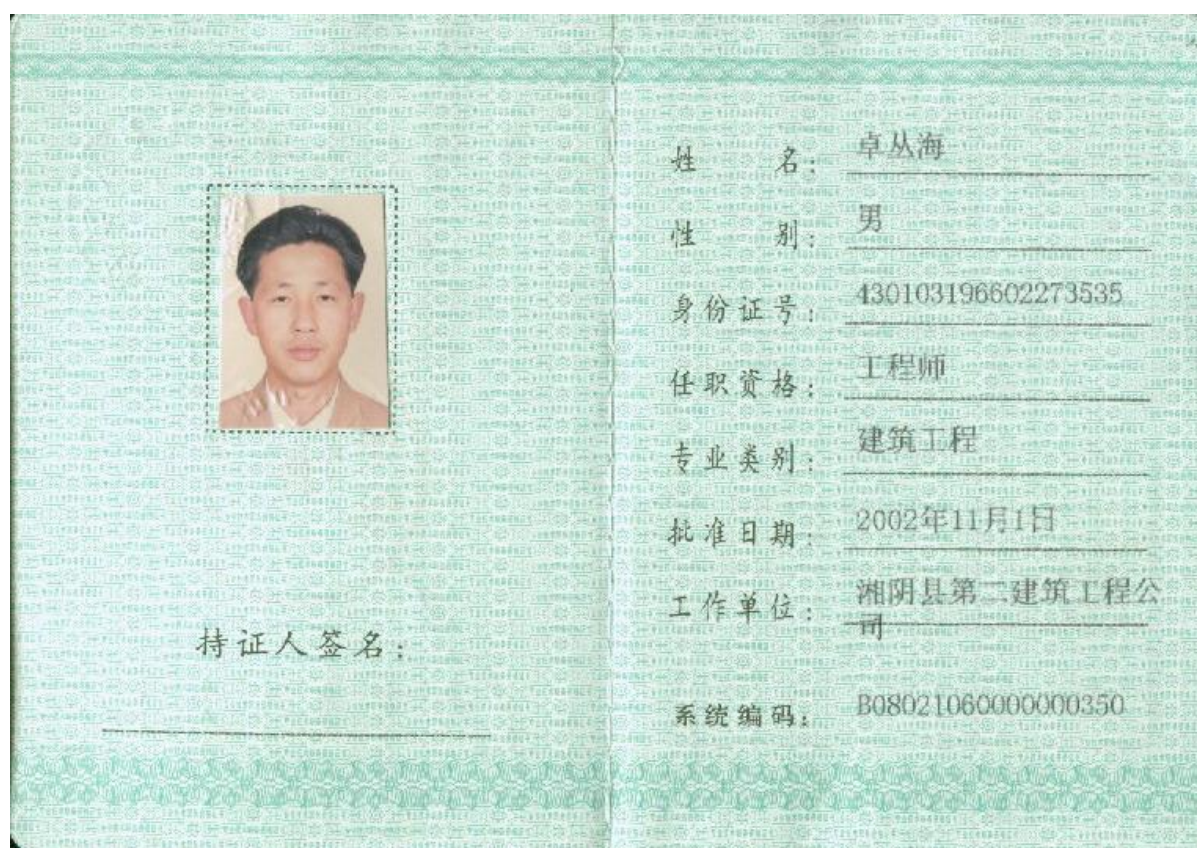 持证人签名：
姓 名： 卓丛海
性 别： 男
身份证号： 430103196602273535
任职资格： 工程师
专业类别： 建筑工程
批准日期： 2002年11月1日
工作单位： 湘阴县第二建筑工程公
司
系统编码： B08021060000000350